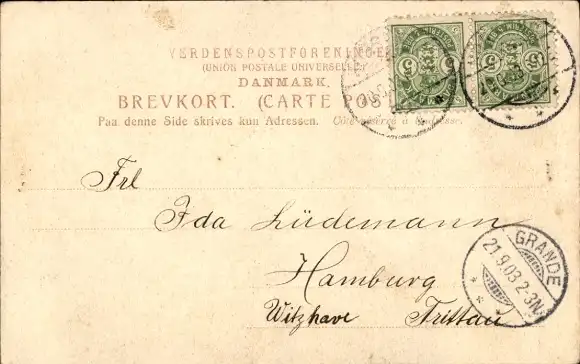 VERDENSPOSTFORENINGEN
(UNION POSTALE UNIVERSELLE)
DANMARK.
BREVKORT. (CARTE POST
Paa denne Side skrives kun Adressen. Côté réservé à l'adresse.
Frl
Ida Lüdemann
Hamburg
Witzhave Trittau
GRANDE
21.9.03 2-3N
5
5
5
5